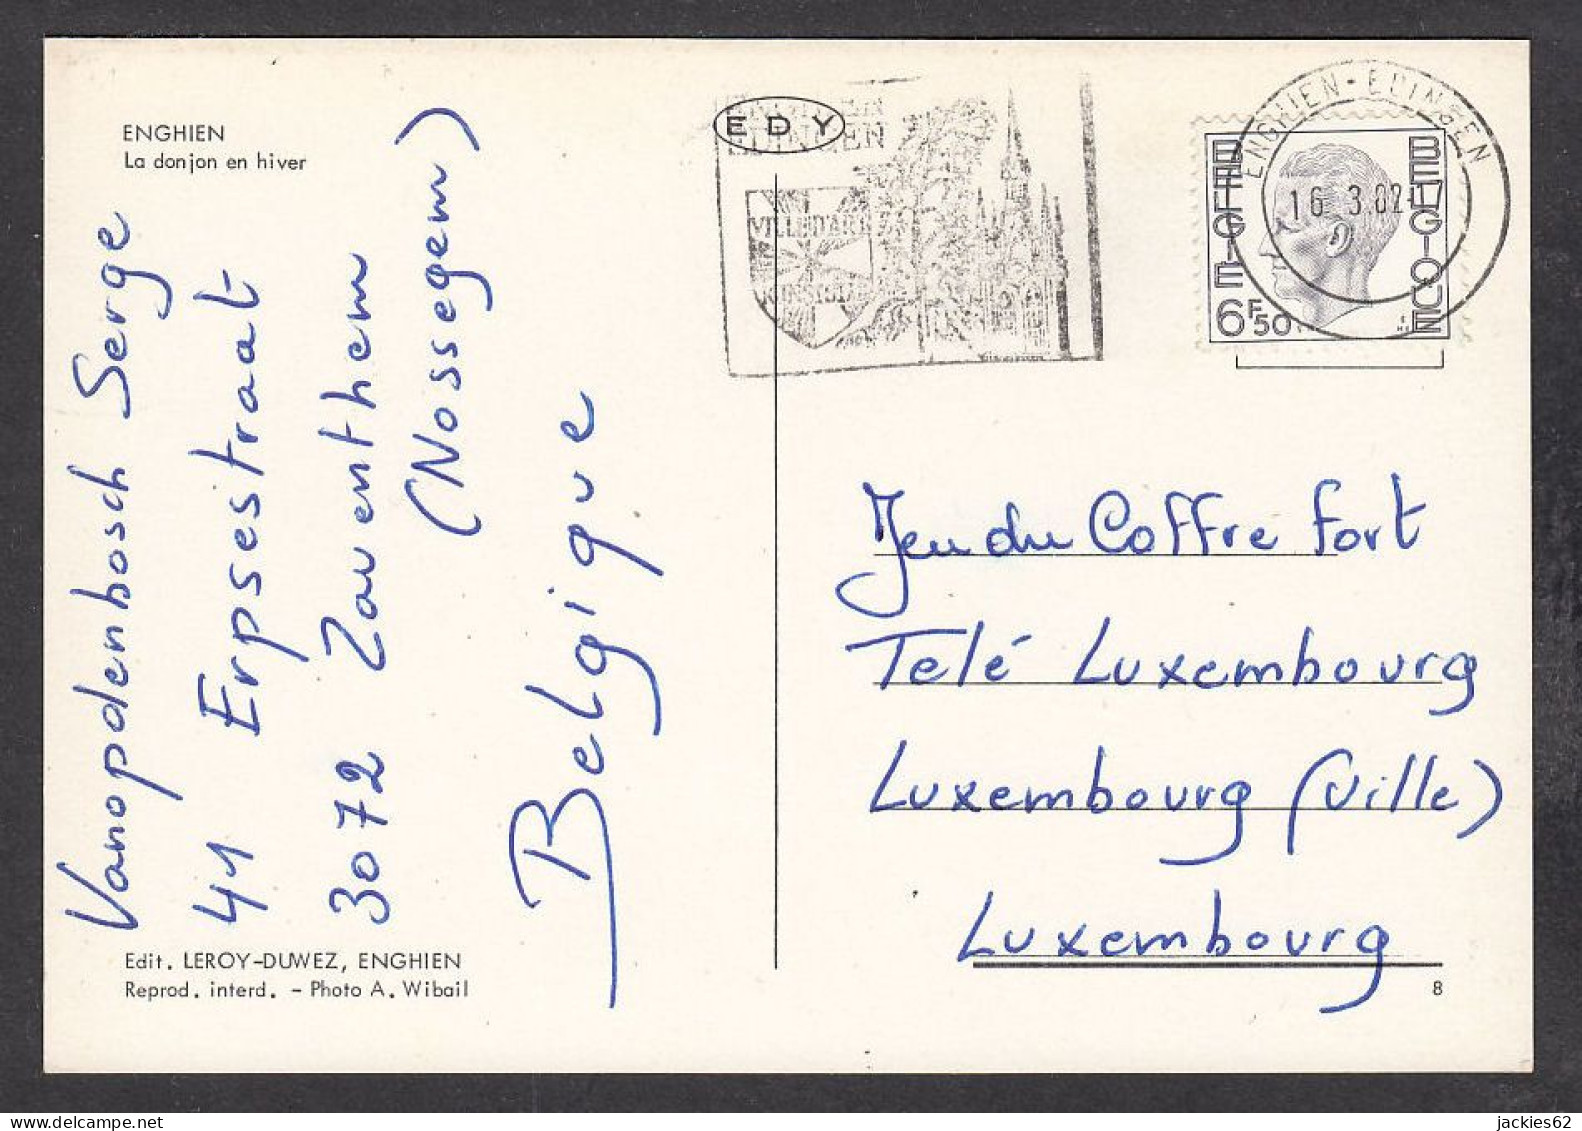 ENGHIEN
La donjon en hiver
Vanopdenbosch Serge
41 Erpsestraat
3072 Zaventhem
(Nossegem)
Belgique
Edit. LEROY-DUWEZ, ENGHIEN
Reprod. interd. - Photo A. Wibail
EDY
ENGHIEN
EDINGEN
VILLE D'ART
KUNSTSTAD
ENGHIEN-EDINGEN
16 3.82
BELGIE
BELGIQUE
6F50
Jeu du Coffre fort
Telé Luxembourg
Luxembourg (Ville)
Luxembourg
8
jackies62